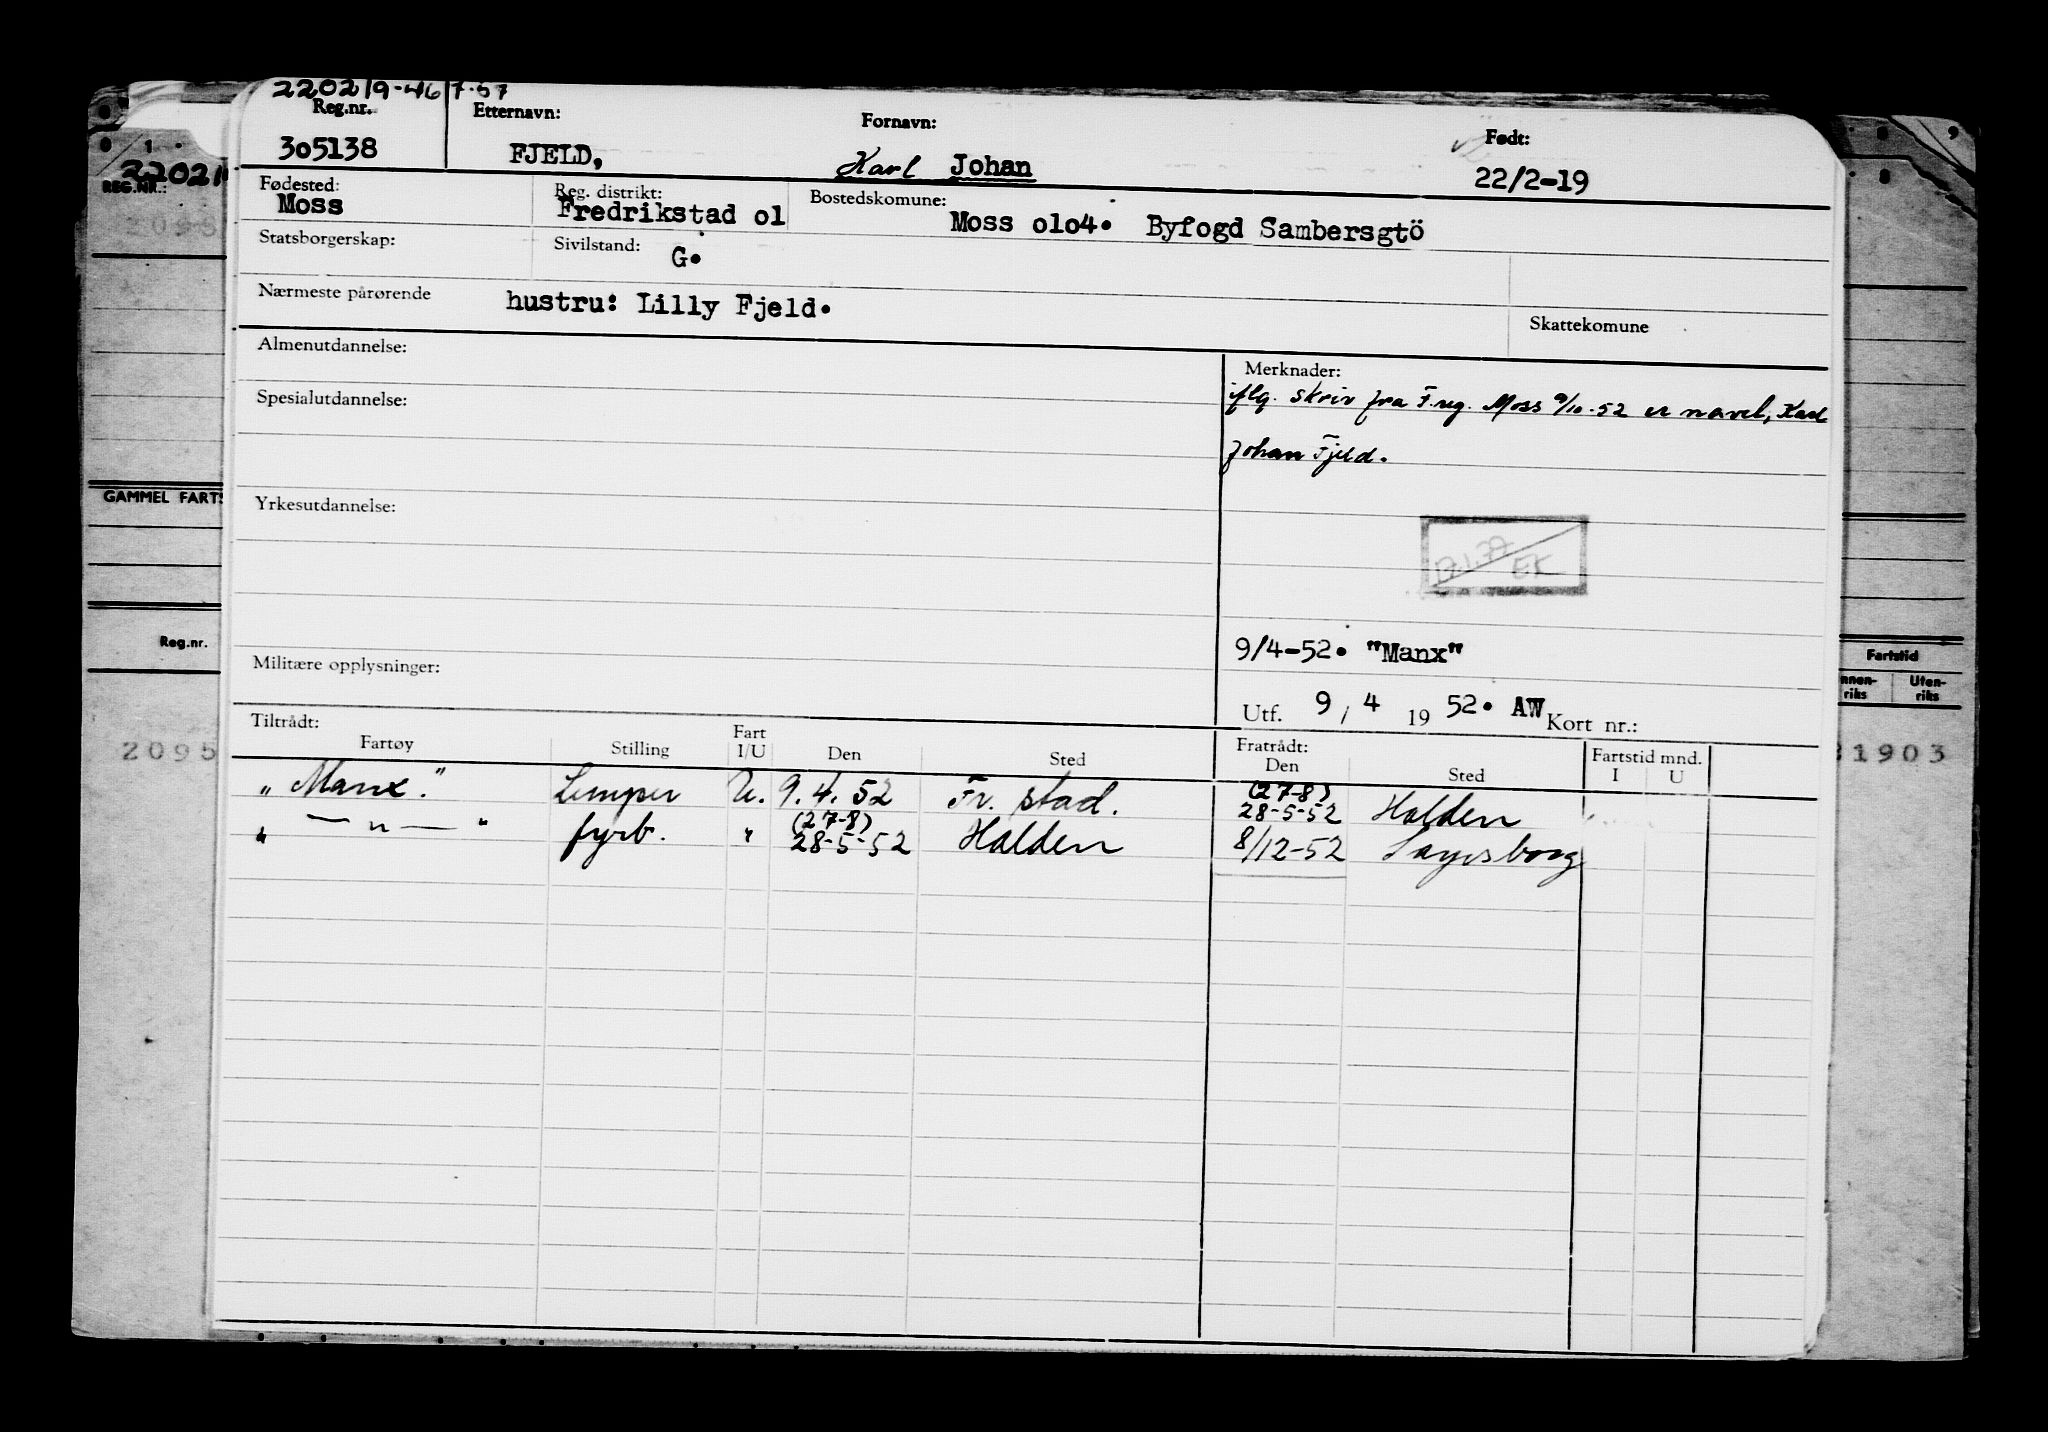 220219-46 7.57
Reg.nr. Etternavn: Fornavn: Født:
305138 FJELD, Karl Johan 22/2-19
22021
REG.NR.:
Fødested: Reg. distrikt: Bostedskomune:
Moss Fredrikstad ol Moss olo4. Byfogd Sambersgtö
Statsborgerskap: Sivilstand: G.
Nærmeste pårørende hustru: Lilly Fjeld.
Skattekomune
Almenutdannelse: Merknader:
Spesialutdannelse: iflg. skriv fra F.reg. Moss 9/10-52 er navnet, Karl
Johan Fjeld.
GAMMEL FARTS
Yrkesutdannelse:
EK
9/4-52. "Manx"
Reg.nr. Militære opplysninger: Fartstid
Utf. 9 / 4 19 52. AW Kort nr.:
nnen-riks Uten-riks
Tiltrådt: Fratrådt:
Fartøy Stilling Fart I/U Den Sted Den Sted Fartstid mnd. I U
2095 21903
"Manx." Lemper U. 9.4.52 Fr.stad. (27-8) 28-5-52 Halden
" — " — " fyrb. " (27-8) 28-5-52 Halden 8/12-52 Sarpsborg